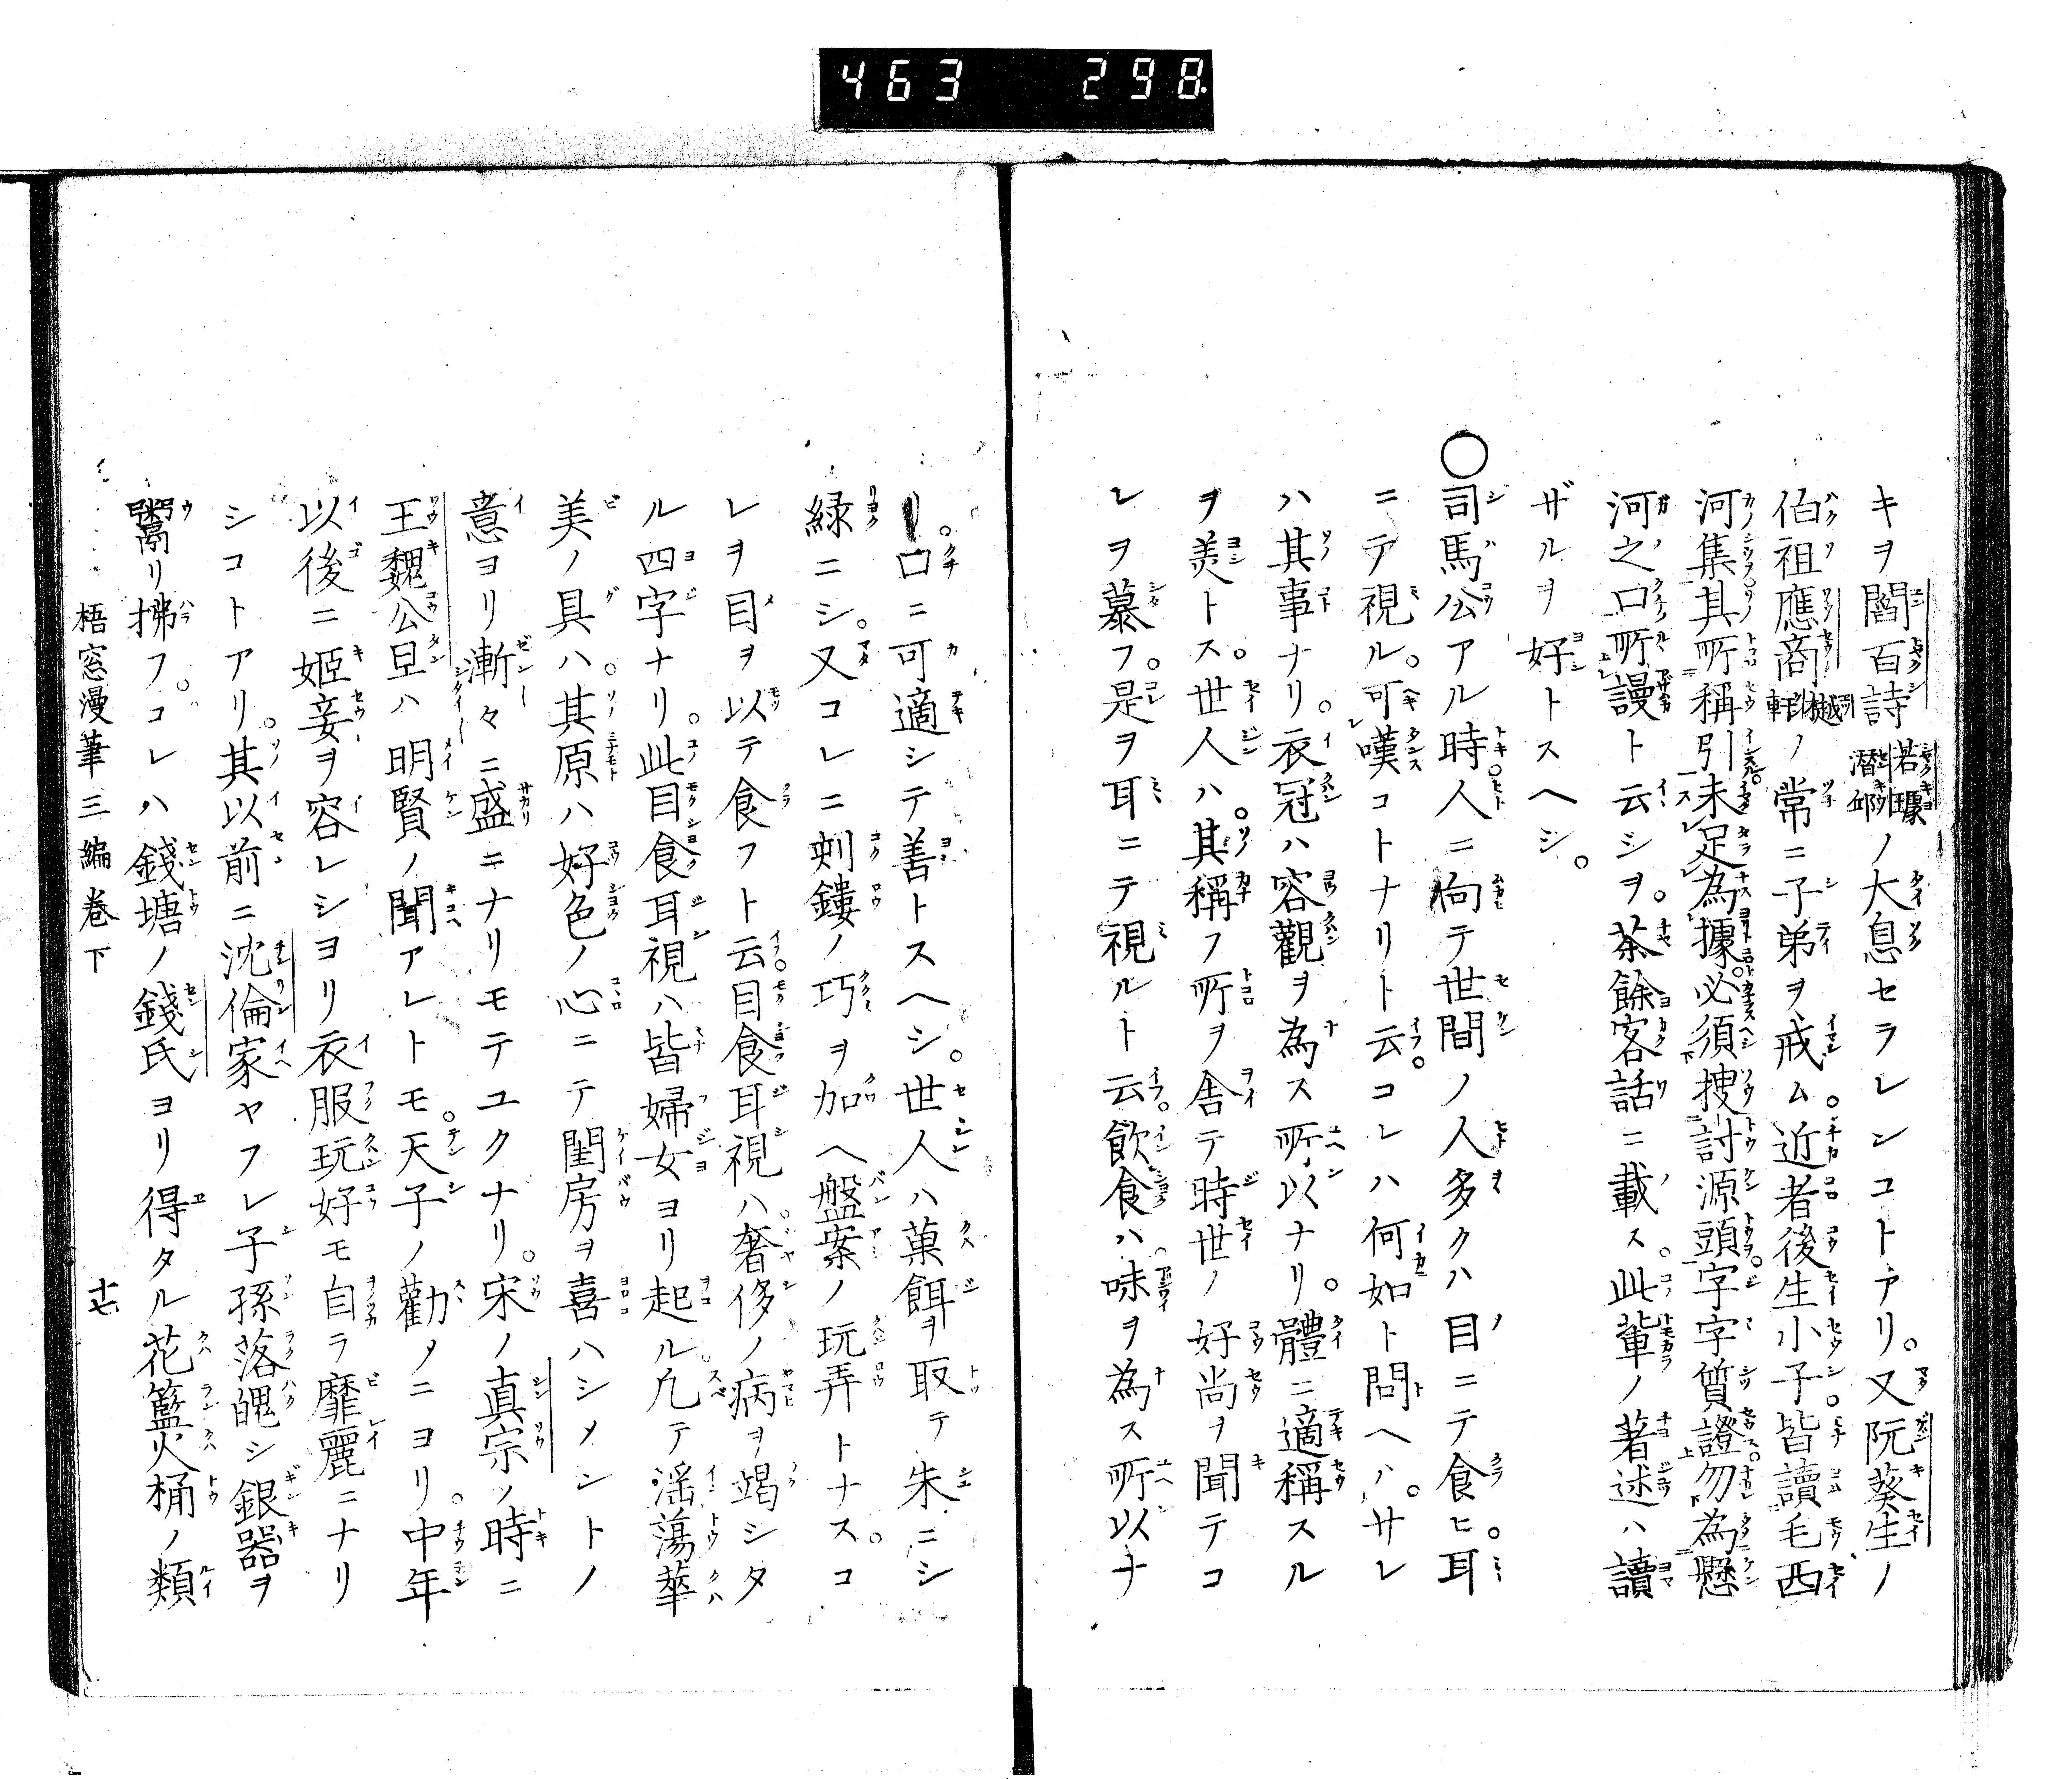 463 298
キヲ閻百詩若璩潛邱ノ大息セラレシコトアリ。又阮葵生ノ
伯祖應商樾軒ノ常ニ子弟ヲ戒ム。近者後生小子。皆讀毛西
河集其所稱引未足為據。必須捜討源頭。字字質證。勿為懸
河之口所謾ト云シヲ。茶餘客話ニ載ス。此輩ノ著述ハ讀
ザルヲ好トスヘシ。
○司馬公アル時。人ニ向テ世間ノ人多クハ目ニテ食ヒ。耳
ニテ視ル。可嘆コトナリト云。コレハ何如ト問ヘハ。サレ
ハ其事ナリ。衣冠ハ容觀ヲ為ス所以ナリ。體ニ適稱スル
ヲ美トス。世人ハ。其稱フ所ヲ舎テ時世ノ好尚ヲ聞テコ
レヲ慕フ。是ヲ耳ニテ視ルト云。飲食ハ味ヲ為ス所以ナ
リ。口ニ可適シテ善トスヘシ。世人ハ菓餌ヲ取テ朱ニシ
緑ニシ。又コレニ刻鏤ノ巧ヲ加ヘ盤案ノ玩弄トナス。コ
レヲ目ヲ以テ食フト云。目食耳視ハ。奢侈ノ病ヲ竭シタ
ル四字ナリ。此目食耳視ハ皆婦女ヨリ起ル。凡テ滛蕩華
美ノ具ハ。其原ハ好色ノ心ニテ閨房ヲ喜ハシメントノ
意ヨリ漸々ニ盛ニナリモテユクナリ。宋ノ真宗ノ時ニ
王魏公旦ハ明賢ノ聞アレトモ。天子ノ勸メニヨリ。中年
以後ニ姬妾ヲ容レシヨリ衣服玩好モ自ラ靡麗ニナリ
シコトアリ。其以前ニ沈倫家ヤフレ子孫落魄シ銀器ヲ
鬻リ拂フ。コレハ錢塘ノ錢氏ヨリ得タル花籃火桶ノ類
梧窓漫筆三編卷下 十七